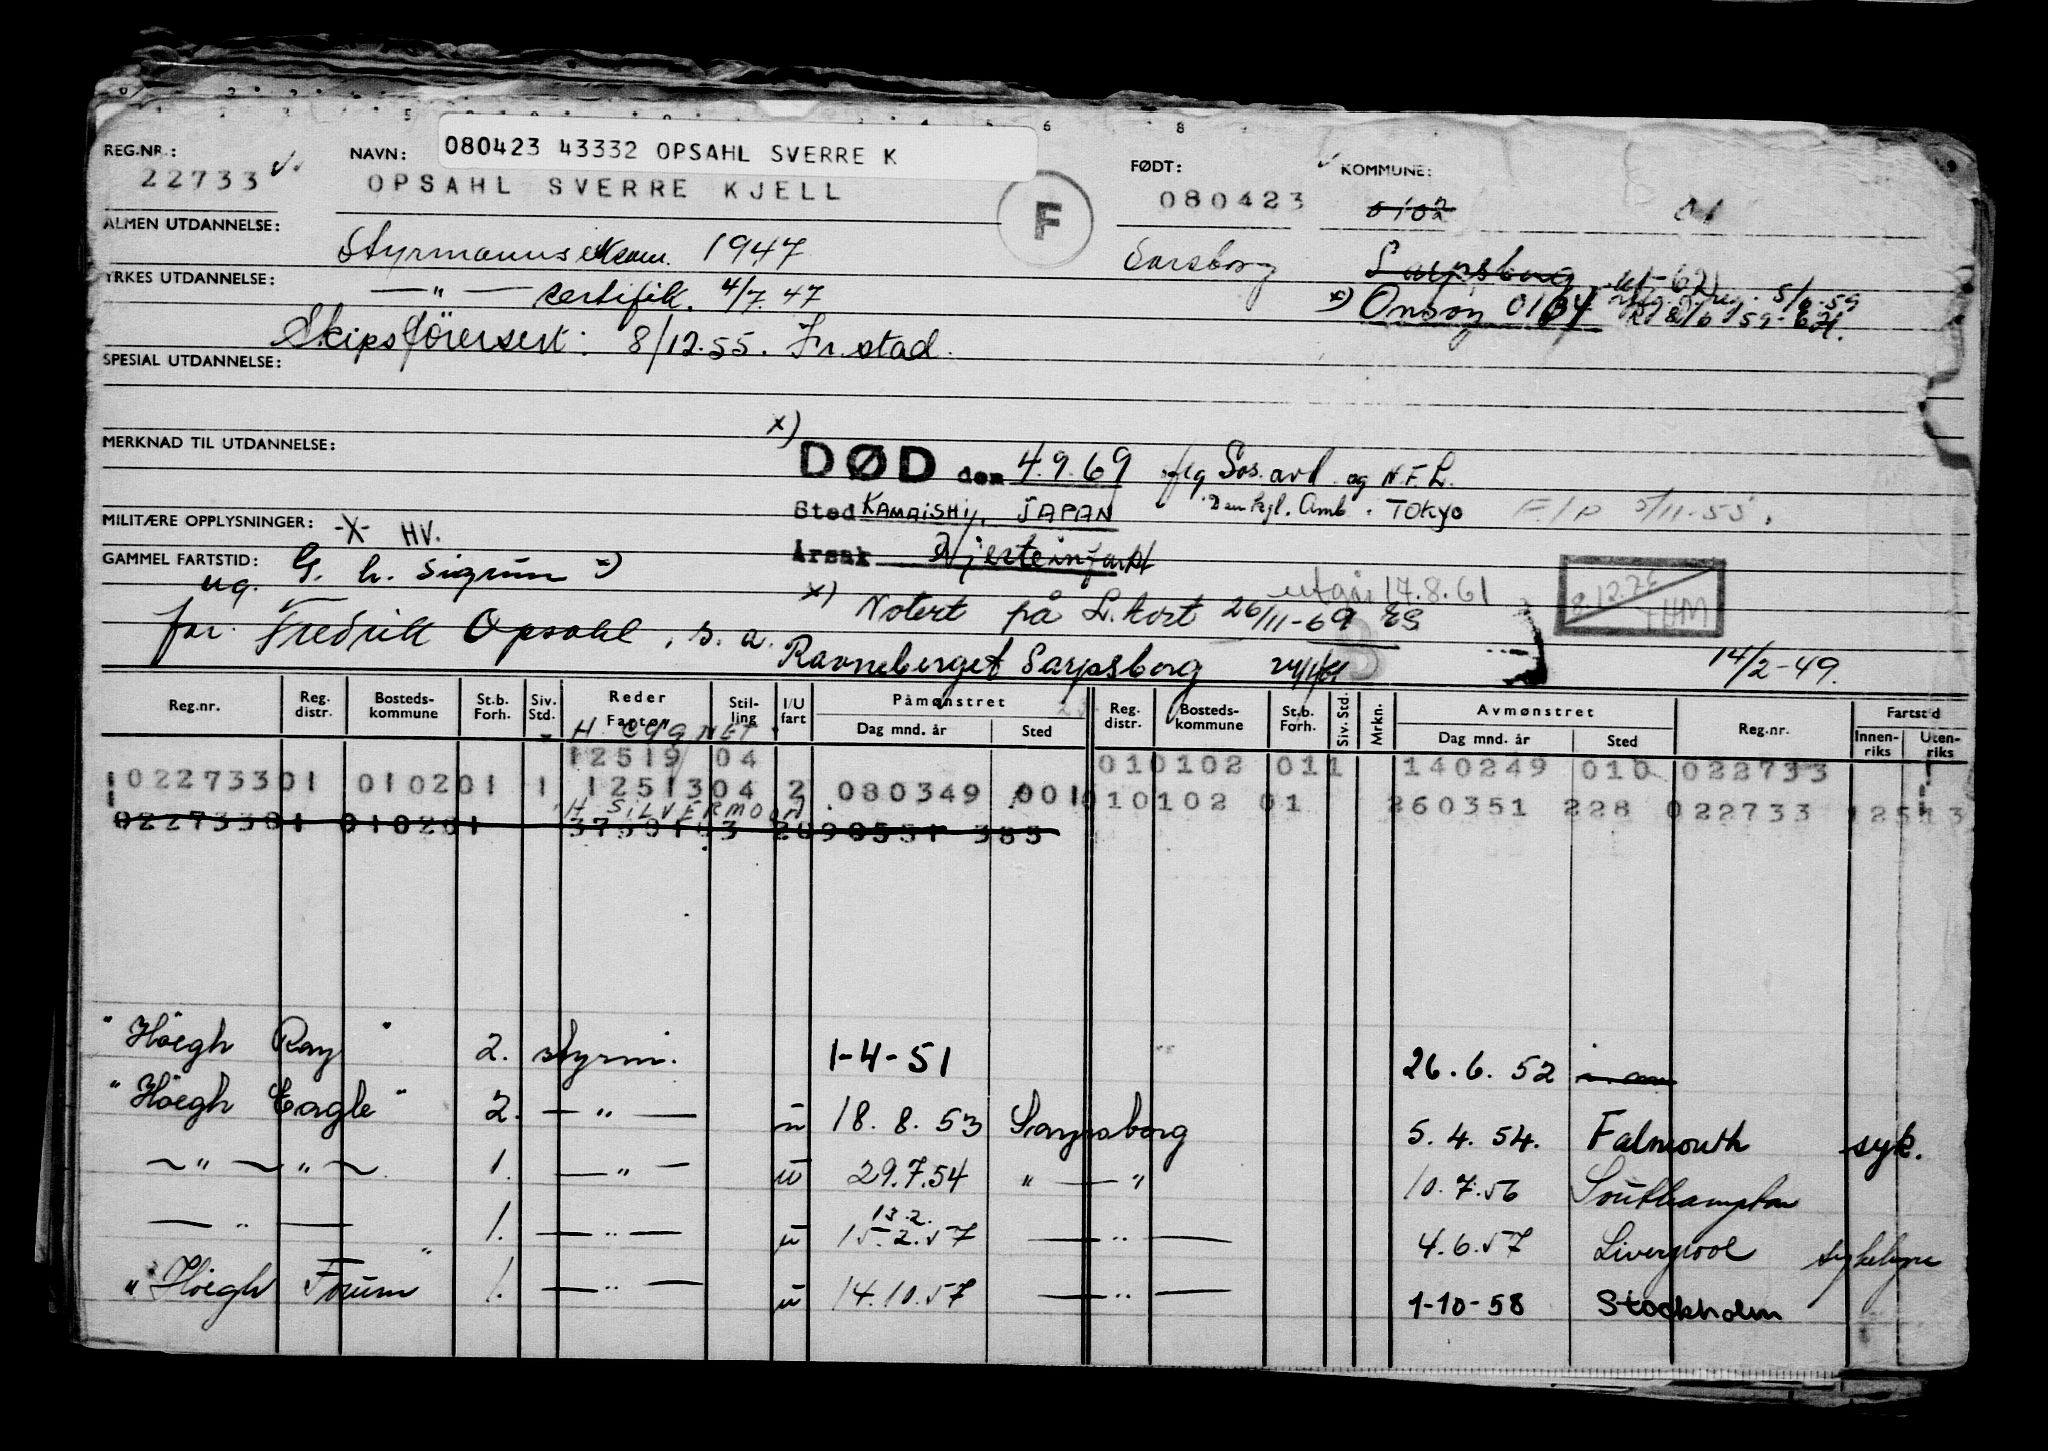 080423 43332 OPSAHL SVERRE K
REG.NR.: NAVN: FØDT: KOMMUNE:
22733 OPSAHL SVERRE KJELL F 080423 0102 01
ALMEN UTDANNELSE: Styrmannseksam. 1947 Sarpsborg
YRKES UTDANNELSE: — " — sertifik. 4/7.47 x) Onsøy 0134
Skipsförersert: 8/12.55. Fr.stad.
SPESIAL UTDANNELSE:
MERKNAD TIL UTDANNELSE:
x)
DØD den 4.9.69 iflg Sos.avd og N.F.L.
Sted KAMAISHI, JAPAN Den kgl. Amb. TOKYO
MILITÆRE OPPLYSNINGER: -X- HV.
Årsak Hjerteinfarkt
GAMMEL FARTSTID: G. h. Sigrun x)
ug.
utgår 17.8.61
x) Notert på L.kort 26/11-69 ES
8.12.72
far. Fredrik Opsahl, s.a.
Ravneberget Sarpsborg
14/2-49.
Reg.nr. Reg. distr. Bosteds-kommune St.b. Forh. Siv. Std. Reder Farten Stil-ling I/U fart Påmønstret Dag mnd. år Sted Reg. distr. Bosteds-kommune St.b. Forh. Siv. Std. Mrkn. Avmønstret Dag mnd. år Sted Reg.nr. Fartstid Innen-riks Uten-riks
H CYGNET
12519 04 010102 011 140249 010 022733
02273301 010201 1 1251304 2 080349 001 010102 01 260351 228 022733
H SILVERMOON
02273301 010201
"Höegh Ray" 2. styrm. 1-4-51 26.6.52
"Höegh Eagle" 2. — " — u 18.8.53 Sarpsborg 5.4.54. Falmouth syk.
— " — " — 1. — " — u 29.7.54 " — " 10.7.56 Southampton
— " — 1. — " — u 13.2. 15.2.57 — " — 4.6.57 Liverpool
"Höegh Forum" 1. — " — u 14.10.57 — " — 1-10-58 Stockholm